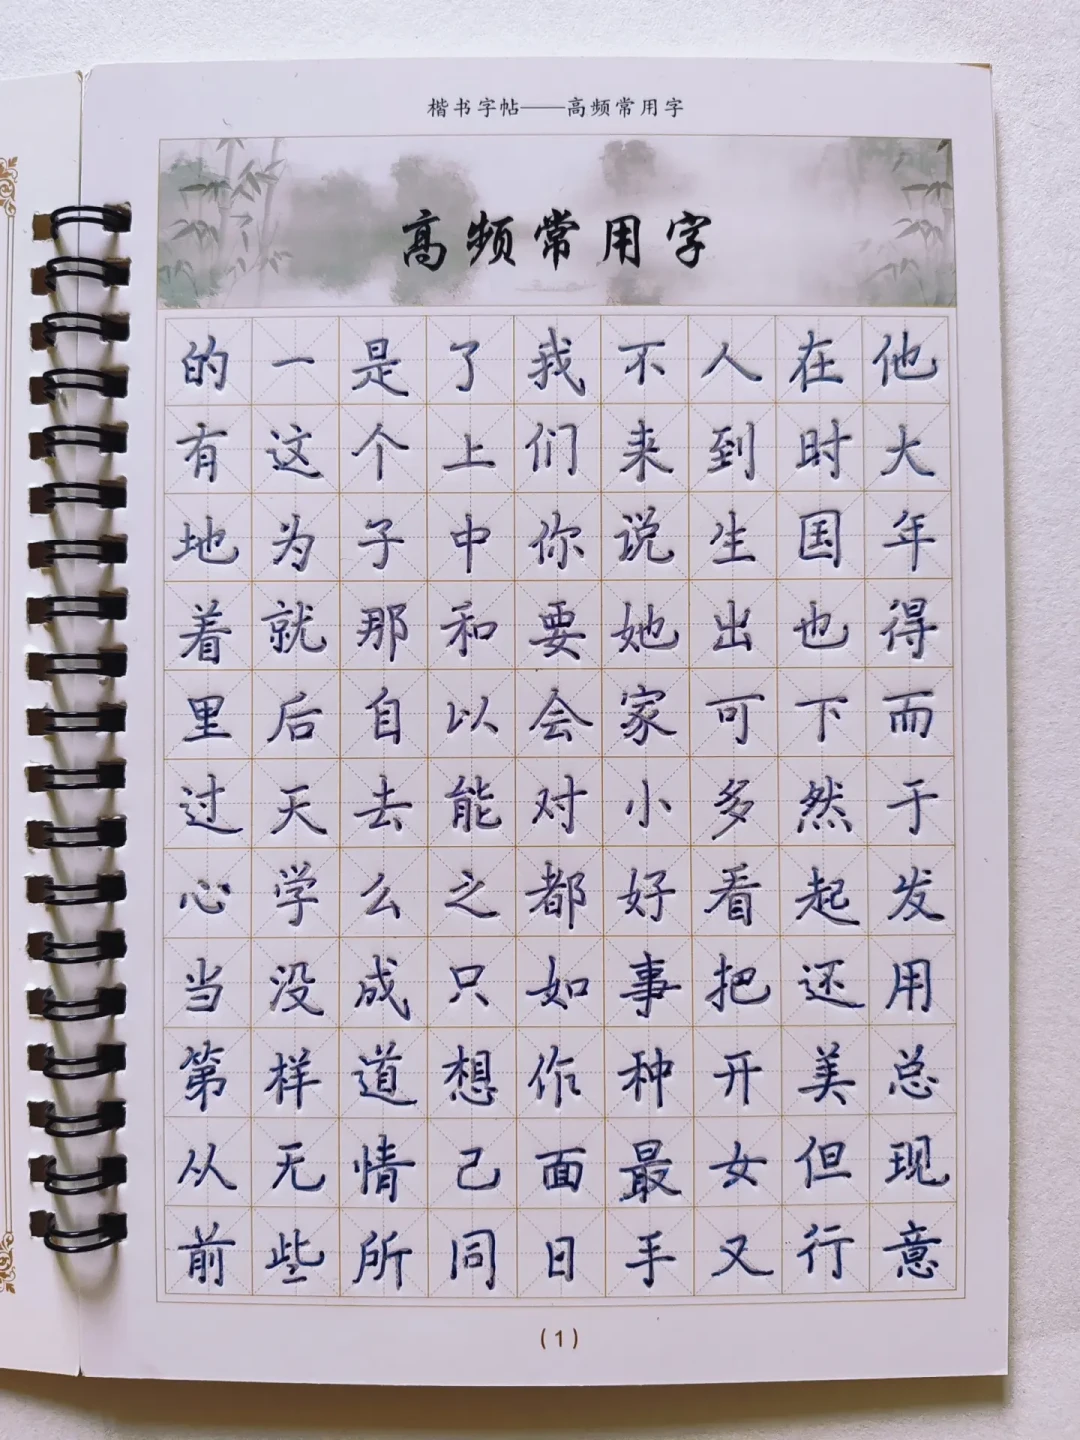 楷书字帖——高频常用字
高频常用字
的一是了我不人在他
有这个上们来到时大
地为子中你说生国年
着就那和要她出也得
里后自以会家可下而
过天去能对小多然于
心学么之都好看起发
当没成只如事把还用
第样道想作种开美总
从无情己面最女但现
前些所同日手又行意
(1)